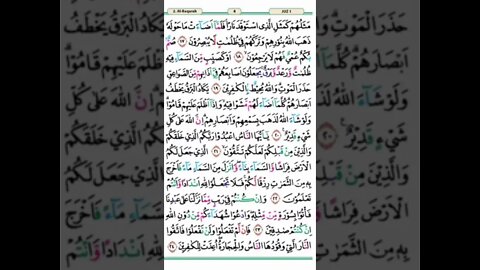 2. Al-Baqarah 4 JUZ 1
مَثَلُهُمْ كَمَثَلِ الَّذِى اسْتَوْقَدَ نَارًا فَلَمَّآ اَضَآءَتْ مَا حَوْلَهٗ
ذَهَبَ اللّٰهُ بِنُوْرِهِمْ وَتَرَكَهُمْ فِيْ ظُلُمٰتٍ لَّا يُبْصِرُوْنَ ١٧ صُمٌّۢ
بُكْمٌ عُمْيٌ فَهُمْ لَا يَرْجِعُوْنَ ١٨ اَوْ كَصَيِّبٍ مِّنَ السَّمَآءِ فِيْهِ
ظُلُمٰتٌ وَّرَعْدٌ وَّبَرْقٌ يَجْعَلُوْنَ اَصَابِعَهُمْ فِيْٓ اٰذَانِهِمْ مِّنَ الصَّوَاعِقِ
حَذَرَ الْمَوْتِ وَاللّٰهُ مُحِيْطٌۢ بِالْكٰفِرِيْنَ ١٩ يَكَادُ الْبَرْقُ يَخْطَفُ
اَبْصَارَهُمْ كُلَّمَآ اَضَآءَ لَهُمْ مَّشَوْا فِيْهِ وَاِذَآ اَظْلَمَ عَلَيْهِمْ قَامُوْا
وَلَوْ شَآءَ اللّٰهُ لَذَهَبَ بِسَمْعِهِمْ وَاَبْصَارِهِمْ اِنَّ اللّٰهَ عَلٰى كُلِّ
شَيْءٍ قَدِيْرٌ ٢٠ يٰٓاَيُّهَا النَّاسُ اعْبُدُوْا رَبَّكُمُ الَّذِيْ خَلَقَكُمْ
وَالَّذِيْنَ مِنْ قَبْلِكُمْ لَعَلَّكُمْ تَتَّقُوْنَ ٢١ الَّذِيْ جَعَلَ لَكُمُ
الْاَرْضَ فِرَاشًا وَّالسَّمَآءَ بِنَآءً وَّاَنْزَلَ مِنَ السَّمَآءِ مَآءً فَاَخْرَجَ
بِهٖ مِنَ الثَّمَرٰتِ رِزْقًا لَّكُمْ فَلَا تَجْعَلُوْا لِلّٰهِ اَنْدَادًا وَّاَنْتُمْ
تَعْلَمُوْنَ ٢٢ وَاِنْ كُنْتُمْ فِيْ رَيْبٍ مِّمَّا نَزَّلْنَا عَلٰى عَبْدِنَا
فَأْتُوْا بِسُوْرَةٍ مِّنْ مِّثْلِهٖ وَادْعُوْا شُهَدَآءَكُمْ مِّنْ دُوْنِ اللّٰهِ
اِنْ كُنْتُمْ صٰدِقِيْنَ ٢٣ فَاِنْ لَّمْ تَفْعَلُوْا وَلَنْ تَفْعَلُوْا فَاتَّقُوا
النَّارَ الَّتِيْ وَقُوْدُهَا النَّاسُ وَالْحِجَارَةُ اُعِدَّتْ لِلْكٰفِرِيْنَ ٢٤